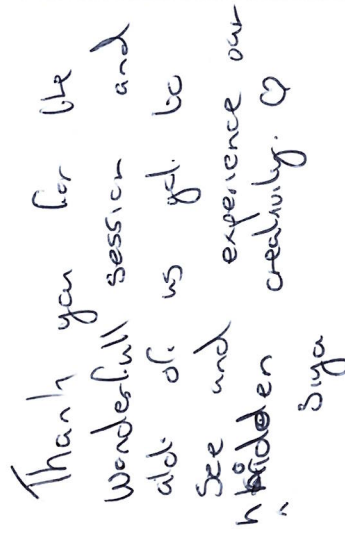 Thank you for the
wonderfull session and
alot of us got to
See and experience our
hidden creativity. ♡
Siya